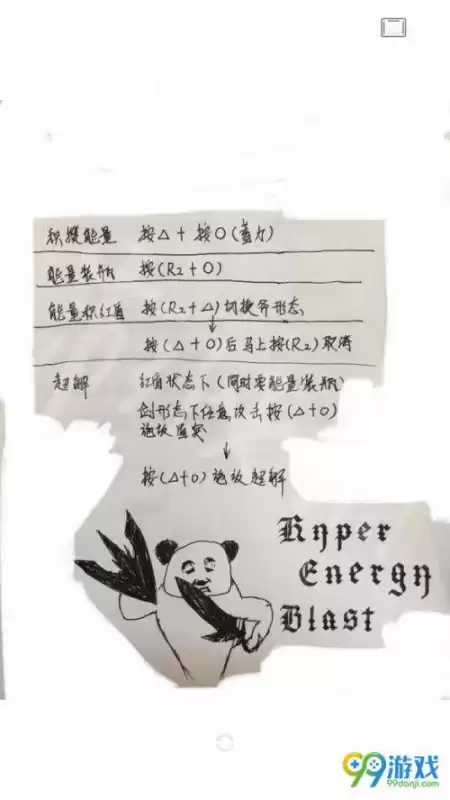 积攒能量 按△+按O(蓄力)
能量装瓶 按(R2+O)
能量积红盾 按(R2+△)切换斧形态
按(△+O)后马上按(R2)取消
超解 红盾状态下(同时要能量装瓶)
剑形态下任意攻击按(△+O)
施放盾突
按(△+O)施放超解
Hyper
Energy
Blast
99游戏
99danji.com